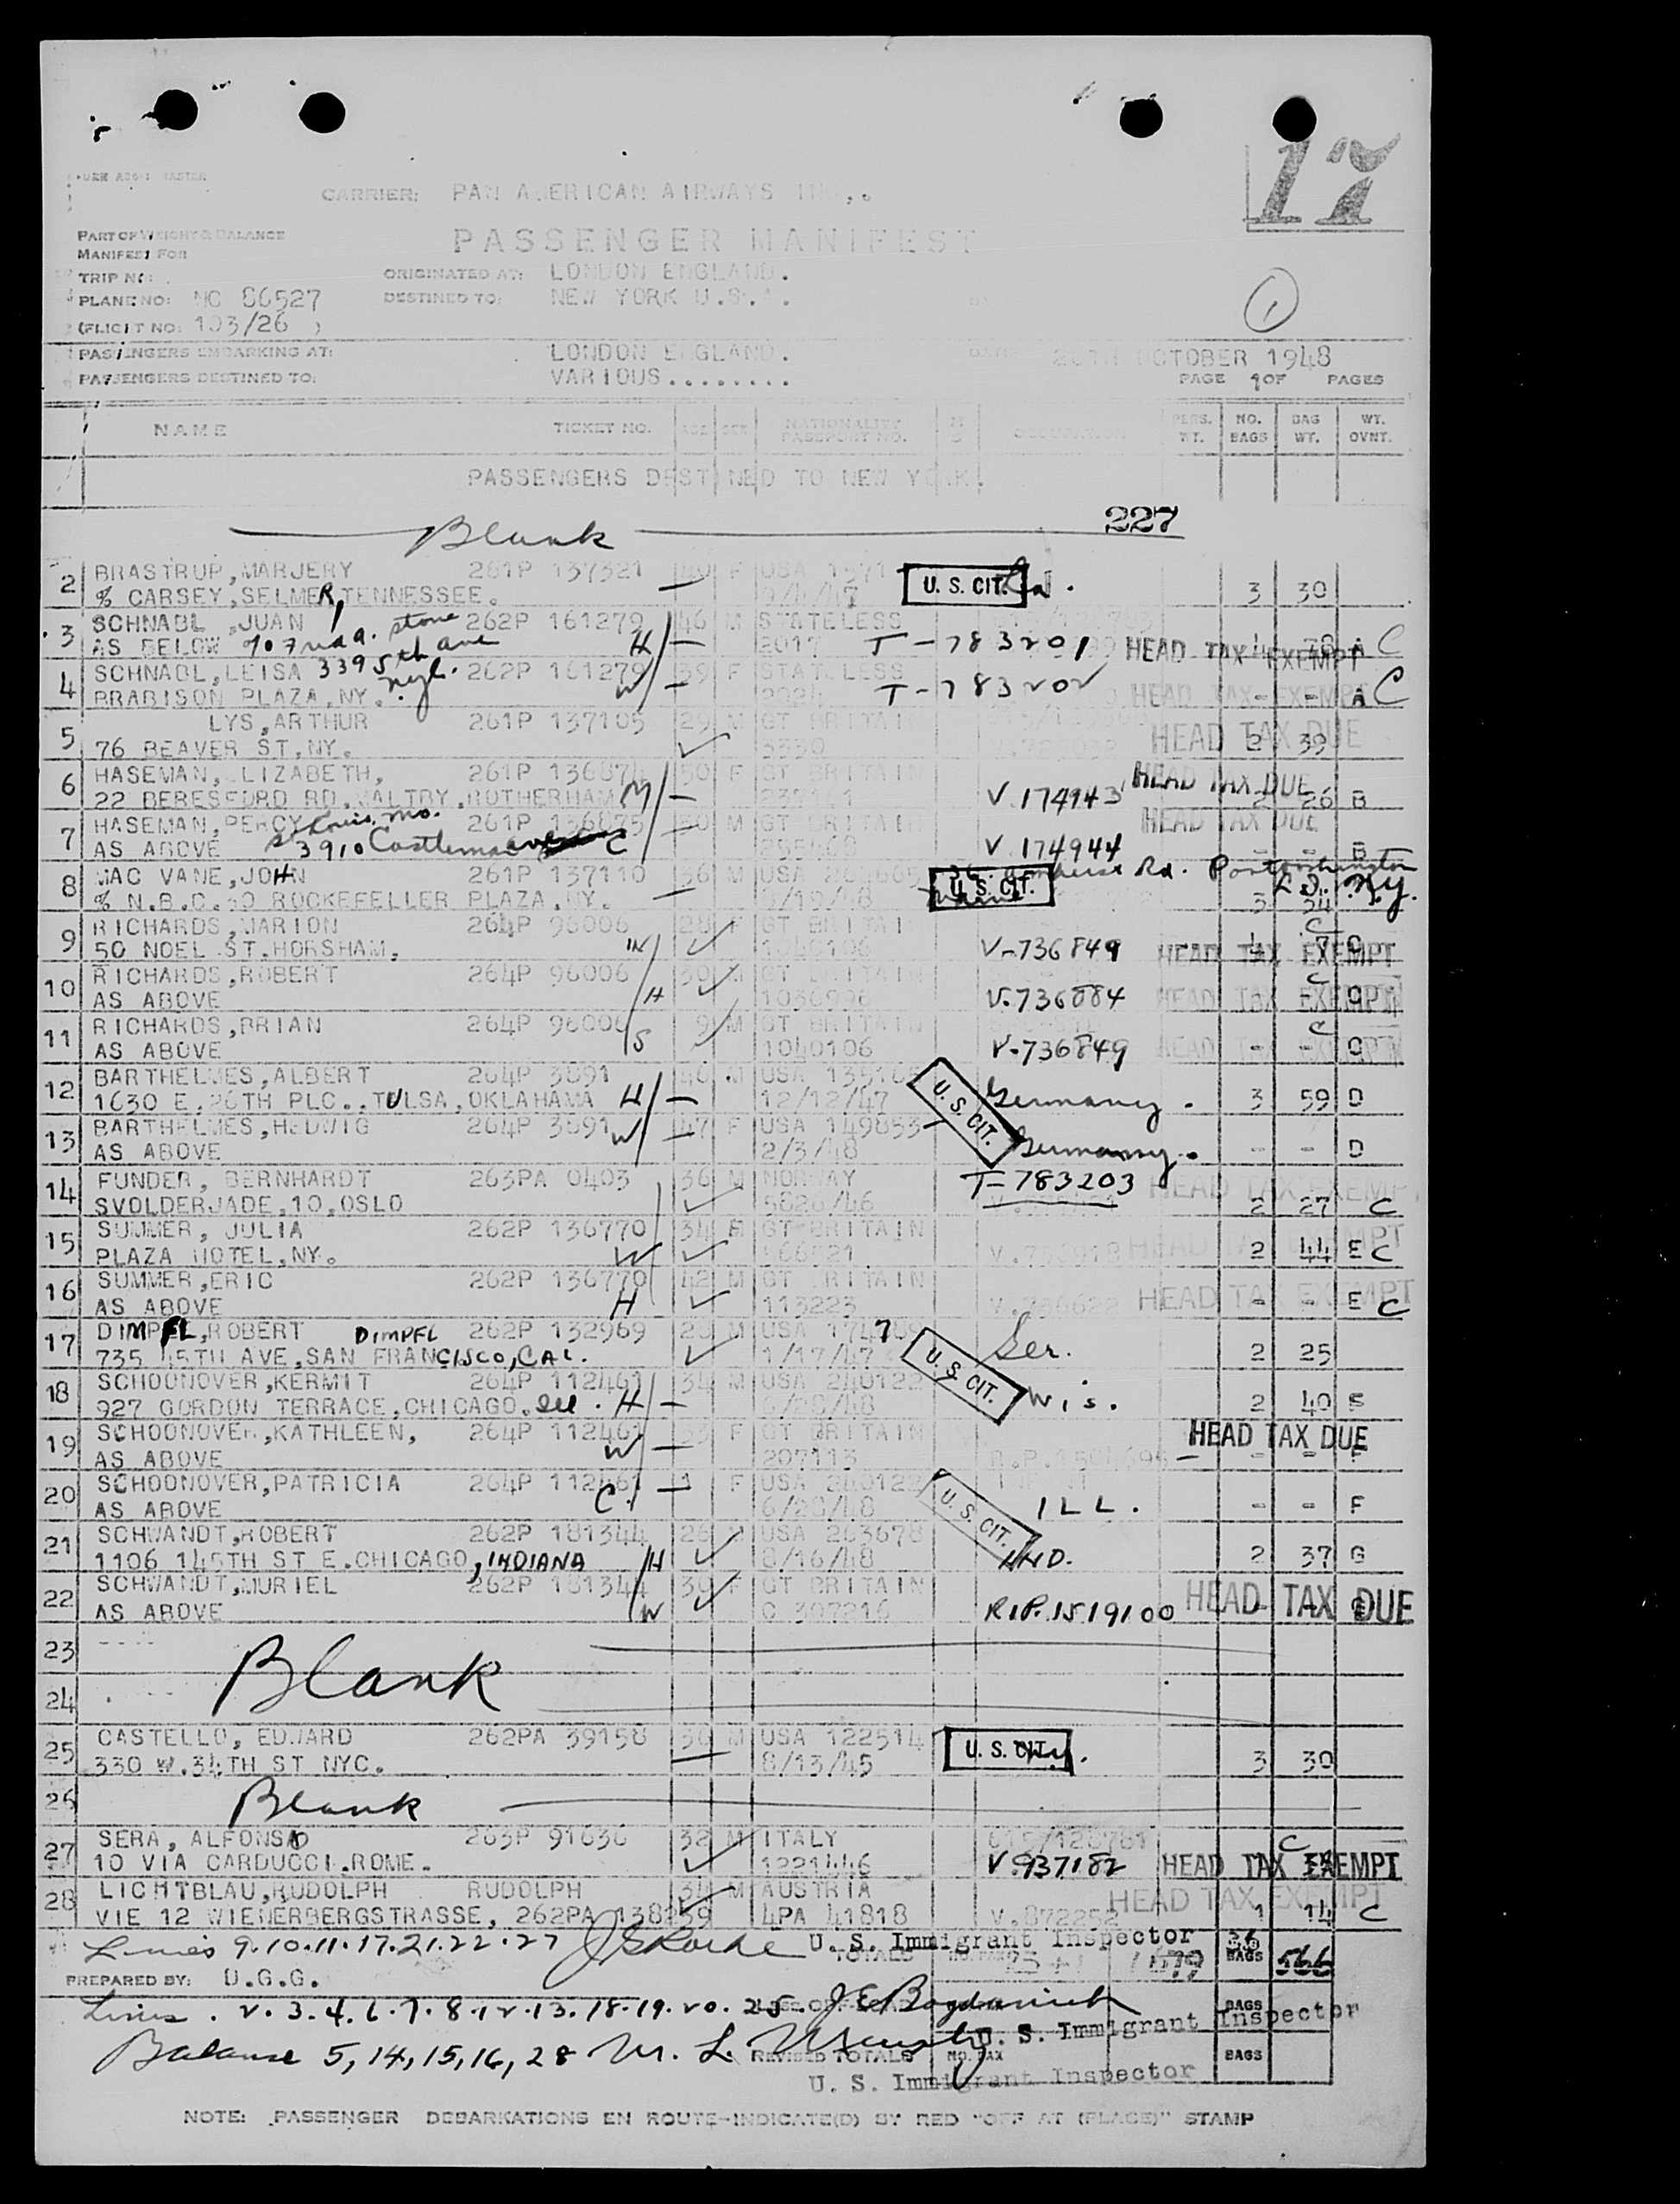 17
CARRIER: PAN AMERICAN AIRWAYS
PART OF WEIGHT & BALANCE
MANIFEST FOR
PASSENGER MANIFEST
TRIP NO:
ORIGINATED AT: LONDON ENGLAND.
PLANE NO: NC 86527
DESTINED TO: NEW YORK U.S.A.
1
(FLIGHT NO: 103/26 )
PASSENGERS EMBARKING AT: LONDON ENGLAND. OCTOBER 1948
PASSENGERS DESTINED TO: VARIOUS........ PAGE 1 OF PAGES
NAME TICKET NO. AGE SEX NATIONALITY PASSPORT NO. OCCUPATION PERS. WT. NO. BAGS BAG WT. WT. OVNT.
PASSENGERS DESTINED TO NEW YORK.
Blank 227
2 BRASTRUP,MARJERY 261P 137321 F USA U. S. CIT.
% CARSEY,SELMER,TENNESSEE. 3 30
3 SCHNABL ,JUAN 262P 161279 46 M STATELESS
AS BELOW stone 5th ave H 2017 T-783201 HEAD TAX EXEMPT A C
4 SCHNABL,LEISA 339 262P 161279 39 F STATELESS
BRABISON PLAZA,NY. W T-783202 HEAD TAX EXEMPT - - A C
5 LYS,ARTHUR 261P 137105 29 M GT BRITAIN
76 BEAVER ST,NY. 5330 HEAD TAX DUE 2 39
6 HASEMAN, LIZABETH, 261P 136874 50 F GT BRITAIN HEAD TAX DUE
22 BERESFORD RD,MALTBY,ROTHERHAM M V.174943 2 26 B
7 HASEMAN,PERCY St Louis, Mo. 261P 136875 50 M GT BRITAIN HEAD TAX DUE
AS ABOVE 3910 Castleman ave C V.174944 - - B
8 MAC VANE,JOHN 261P 137110 36 M USA U. S. CIT. Rd. Port Washington
% N.B.C.30 ROCKEFELLER PLAZA,NY. 3 54 L.I. N.Y.
9 RICHARDS,MARION 264P 96006 28 F GT BRITAIN C
50 NOEL ST.HORSHAM. W 1040106 V-736849 HEAD TAX EXEMPT
10 RICHARDS,ROBERT 264P 96006 30 M GT BRITAIN C
AS ABOVE H 1036996 V.736884 HEAD TAX EXEMPT
11 RICHARDS,BRIAN 264P 96006 9 M GT BRITAIN C
AS ABOVE S 1040106 V-736849 HEAD TAX EXEMPT - - C
12 BARTHELMES,ALBERT 264P 3691 46 M USA
1630 E.26TH PLC.,TULSA,OKLAHAMA H 12/12/47 U. S. CIT. Germany. 3 59 D
13 BARTHELMES,HEDWIG 264P 3691 W 47 F USA 149853
AS ABOVE 2/3/48 Germany. - - D
14 FUNDER, BERNHARDT 263PA 0403 36 M NORWAY T-783203 HEAD TAX EXEMPT
SVOLDERJADE,10,OSLO 5620/46 2 27 C
15 SUMMER, JULIA 262P 136770 34 F GT BRITAIN
PLAZA HOTEL,NY. W HEAD TAX EXEMPT 2 44 E C
16 SUMMER,ERIC 262P 136770 42 M GT BRITAIN
AS ABOVE H 113223 HEAD TAX EXEMPT - - E C
17 DIMPFL,ROBERT DIMPFL 262P 132969 M USA
735 45TH AVE,SAN FRANCISCO,CAL. 1/17/47 U. S. CIT. Ger. 2 25
18 SCHOONOVER,KERMIT 264P 112461 34 M USA 240122
927 GORDON TERRACE,CHICAGO. Ill. H 6/28/48 Wis. 2 40 F
19 SCHOONOVER,KATHLEEN, 264P 112461 F GT BRITAIN HEAD TAX DUE
AS ABOVE W 207113 - - F
20 SCHOONOVER,PATRICIA 264P 112461 F USA 240122
AS ABOVE C. 6/28/48 U. S. CIT. ILL. - - F
21 SCHWANDT,ROBERT 262P 181344 26 M USA 263678
1106 145TH ST E.CHICAGO,INDIANA H 8/16/48 IND. 2 37 G
22 SCHWANDT,MURIEL 262P 181344 30 F GT BRITAIN
AS ABOVE W C 307216 R.P.1519100 HEAD TAX DUE
23
Blank
24
25 CASTELLO, EDWARD 262PA 39158 M USA 122514
330 W.34TH ST NYC. 8/13/45 U. S. CIT. 3 30
26 Blank
27 SERA, ALFONSO 263P 91636 32 M ITALY C
10 VIA CARDUCCI.ROME. 1221446 V.937182 HEAD TAX EXEMPT
28 LICHTBLAU,RUDOLPH RUDOLPH 34 M AUSTRIA HEAD TAX EXEMPT
VIE 12 WIENERBERGSTRASSE, 262PA 138239 4PA 41818 V.872252 1 14 C
Lines 9.10.11.17.21.22.27 U. S. Immigrant Inspector
TOTALS BAGS 566
PREPARED BY: D.G.G.
Lines. 2.3.4.6.7.8.12.13.18.19.20.25. J E Bogdanich
U. S. Immigrant Inspector BAGS
Balance 5,14,15,16,28 M. L.
REVISED TOTALS NO. PAX BAGS
U. S. Immigrant Inspector
NOTE: PASSENGER DEBARKATIONS EN ROUTE-INDICATE(D) BY RED "OFF AT (PLACE)" STAMP